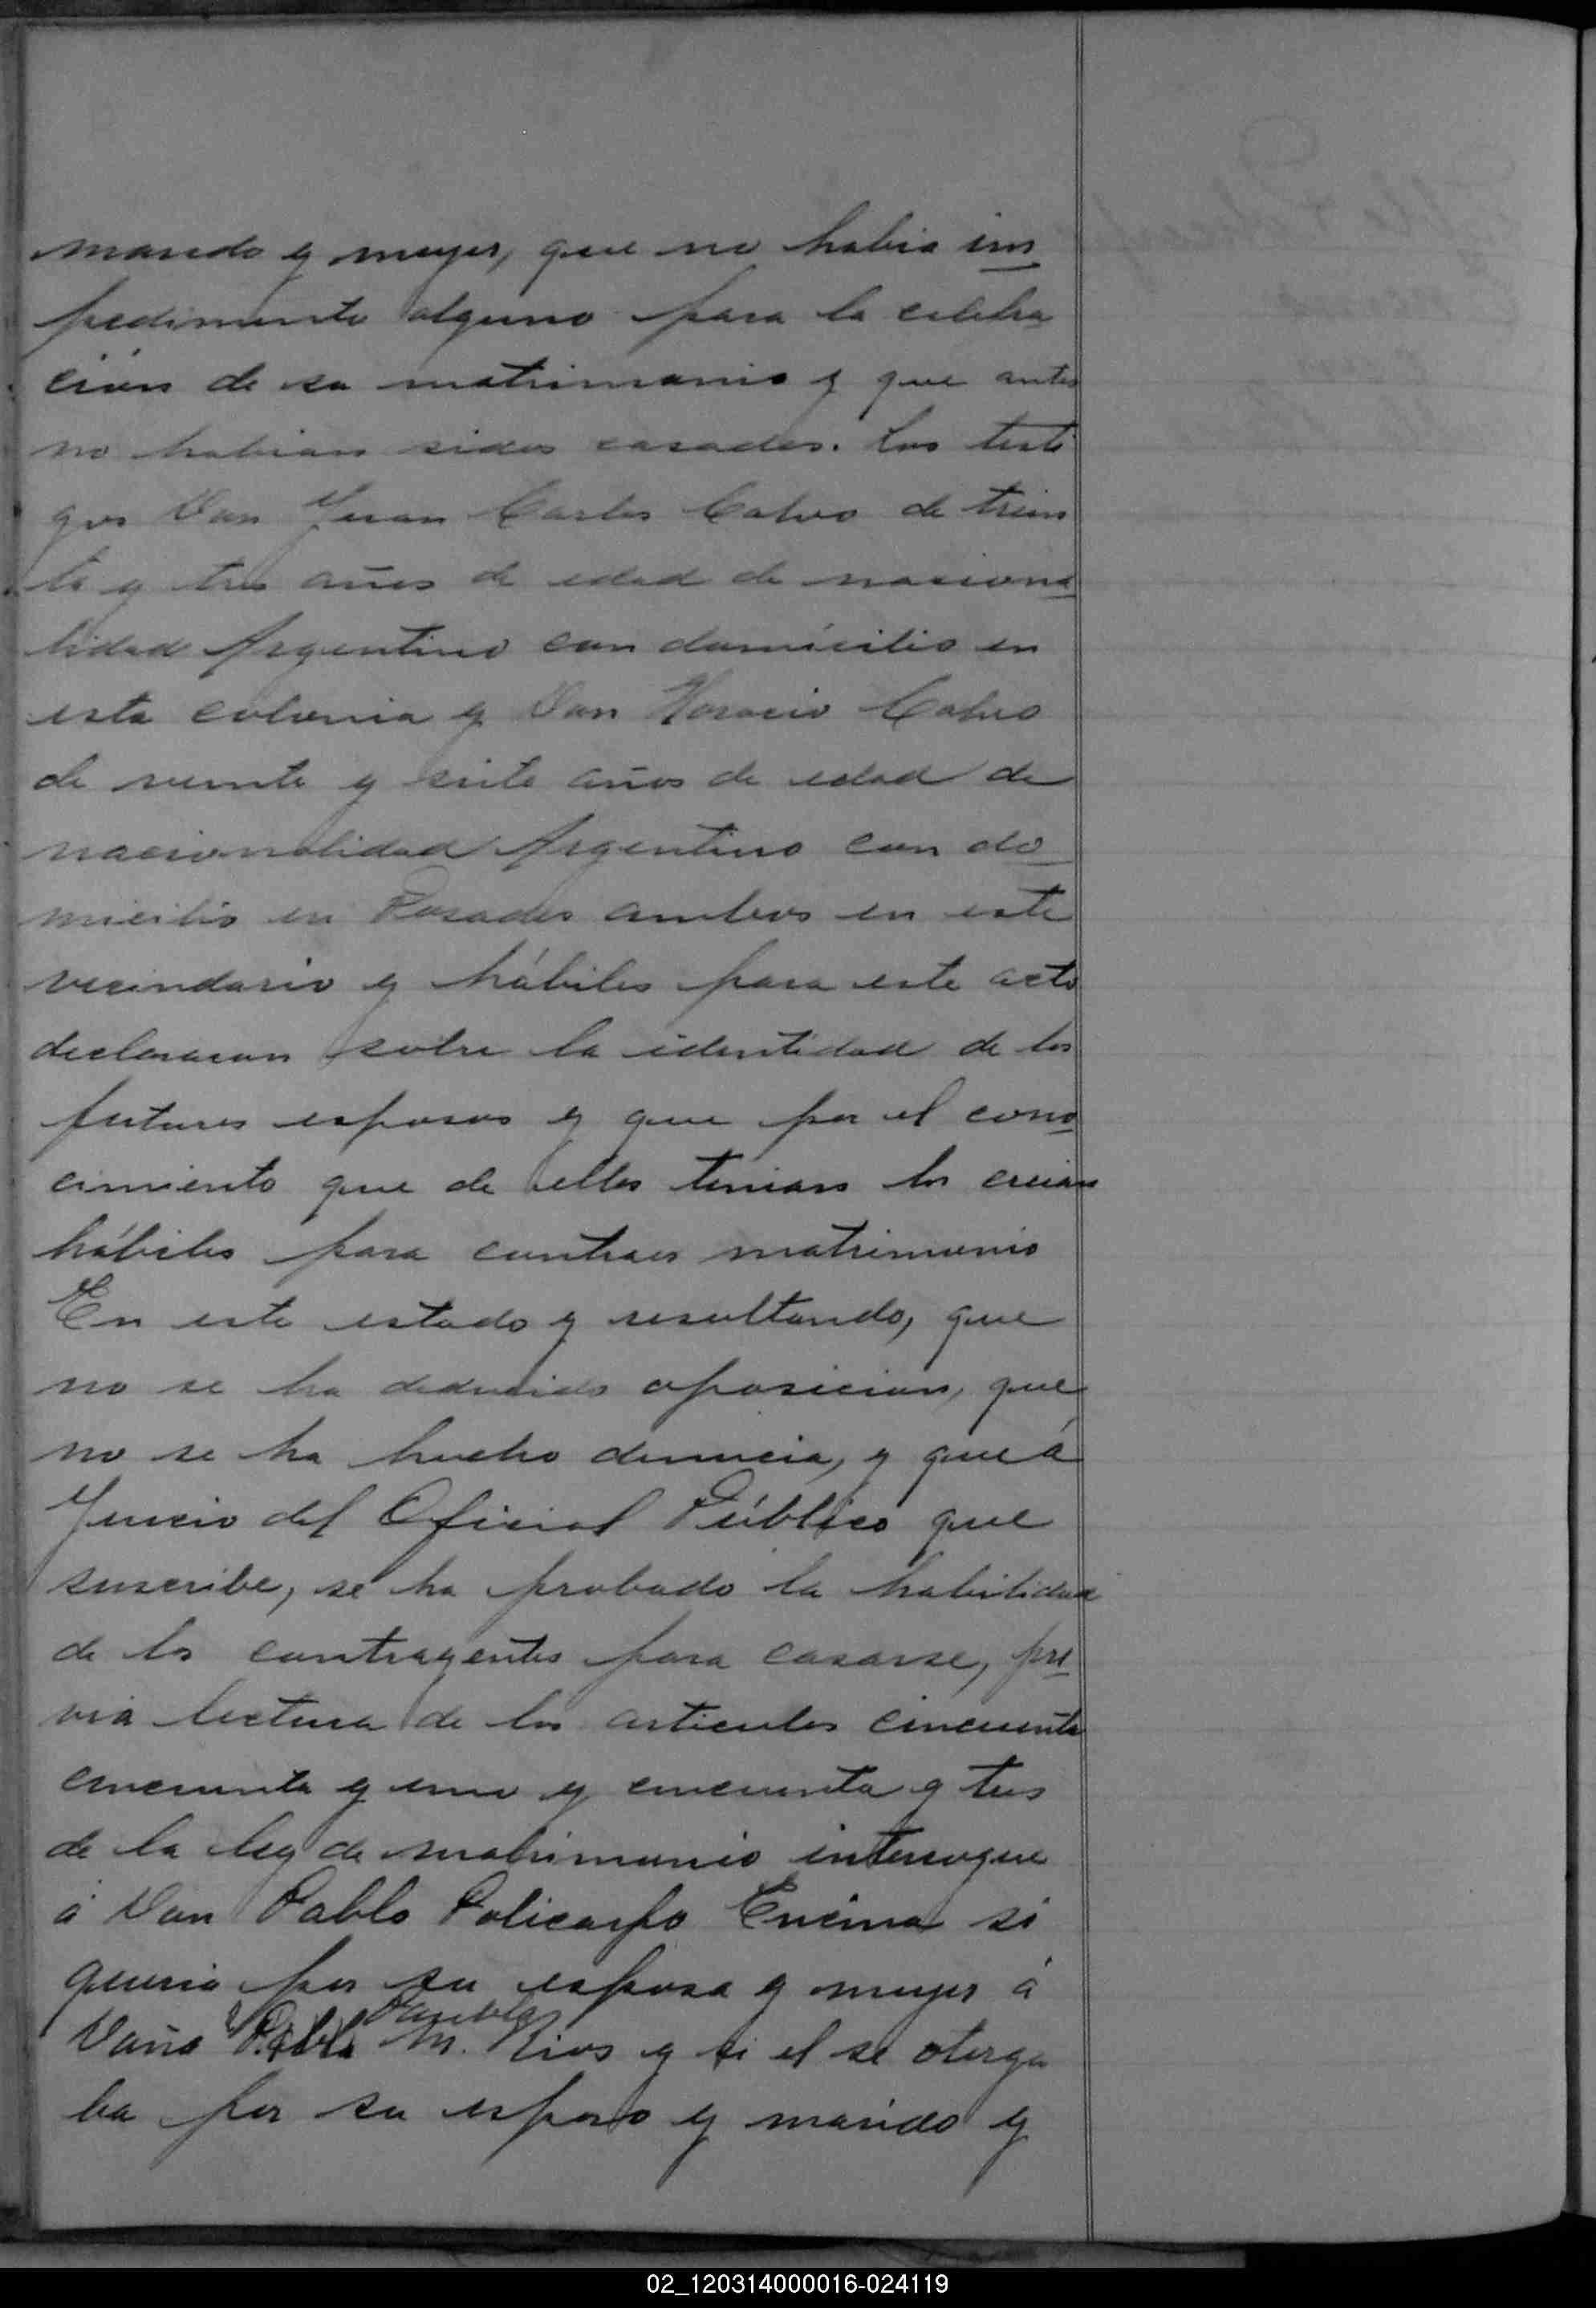 marido y mujer, que no habia im
pedimento alguno para la celebra
ción de su matrimonio y que antes
no habian sidos casados. Los testi
gos Don Juan Carlos Calvo de trein
ta y tres años de edad de naciona
lidad Argentino con domícilio en
esta colonia y Don Horacio Calvo
de veinte y siete años de edad de
nacionalidad Argentino con do
micilio en Posadas ambos en este
vecindario y hábiles para este acto
declararon sobre la identidad de los
futuros esposos y que por el cono
cimiento que de ellos tenian los creian
hábiles para contraer matrimonio
En este estado y resultando, que
no se ha deducido oposicion, que
no se ha hecho denuncia, y que á
Juicio del Oficial Público que
suscribe, se ha probado la habilidad
de los contrayentes para casarse, pre
via lectura de los articulos cincuenta
cincuenta y uno y cincuenta y tres
de la ley de matrimonio interrogue
á Don Pablo Policarpo Encina si
queria por su esposa y mujer á
Doña M. Rios y si el se otorga
ba por su esposo y marido y
02_120314000016-024119